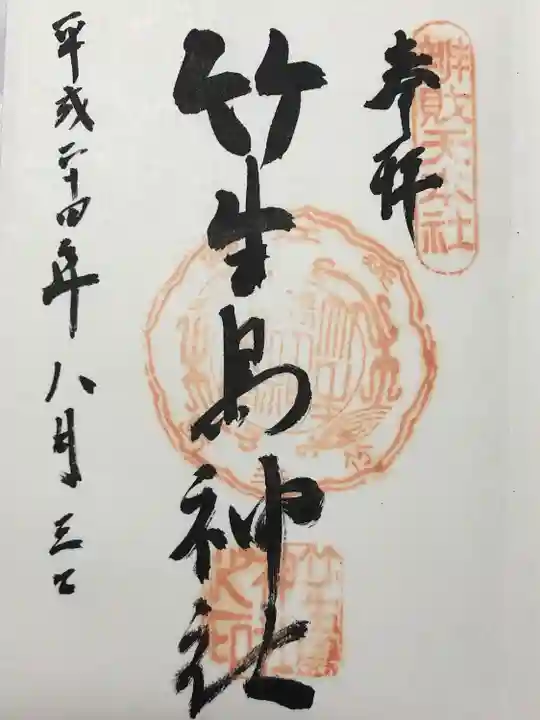 辨財天本社
奉拝
竹生島神社
竹生島神社之印
平成二十四年八月三日